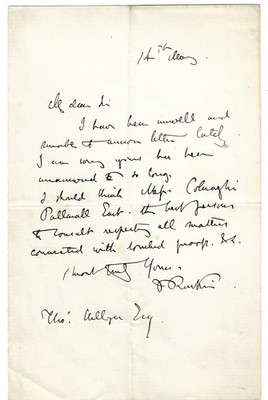 14th May
My dear Sir
I have been unwell and
unable to answer letters lately.
I am sorry yours has been
unanswered so long.
I should think Messrs Colnaghi
Pallmall East. the best persons
to consult respecting all matters
connected with proofs. &c.
Most truly Yours.
J Ruskin
Thos: Esq